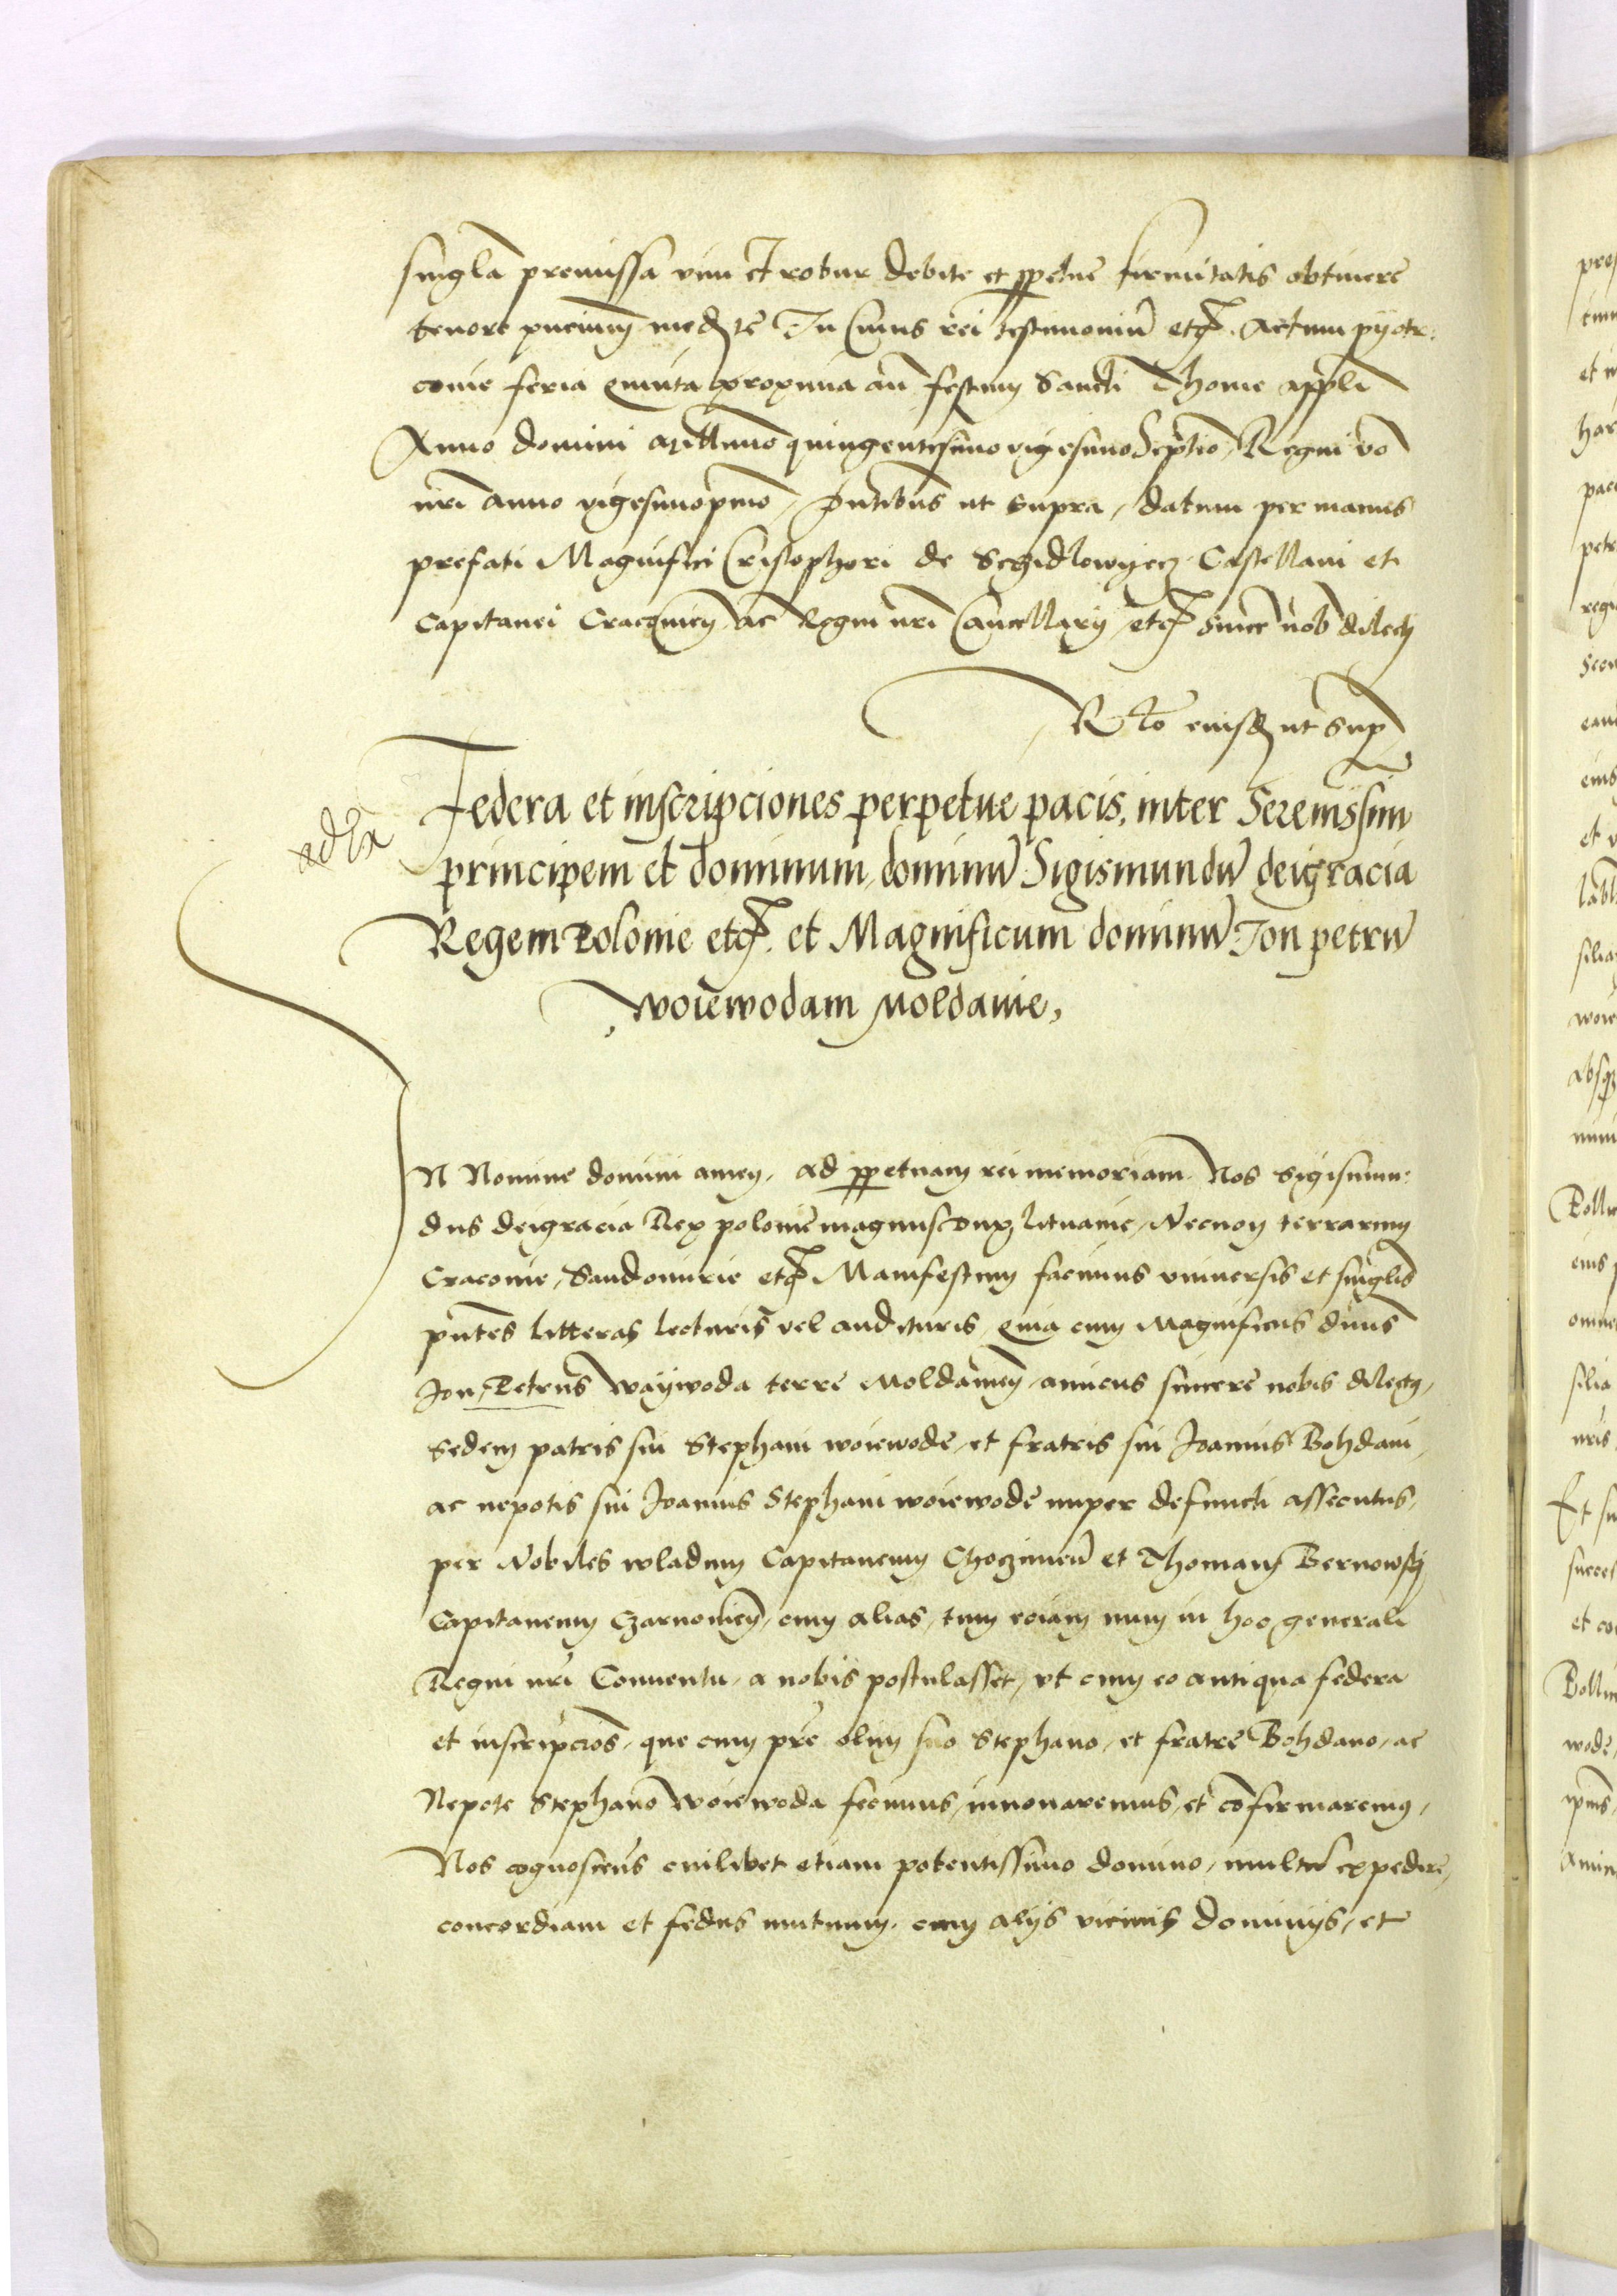 singla premissa vim et robur debite et ppetue firmitatis obtinere
tenore pncium medte In Cuius rei testimoniu etc. Actum pyotr:
covie feria quinta proxima an festum Sancti Thome appli
Anno domini Millmo quingentesimo vigesimo Septio, Regni vo
nri anno vigesimopmo, Pntibus ut supra, datum per manus
prefati Magnifici Cristophori de Schidlowyecz Castellani et
Capitanei Cracovien ac Regni nri Cancellarij etc sincere nob dilecti
Rlo eiusd ut Sup
Federa et inscripciones perpetue pacis, inter Serenissim
principem et dominum, dominu Sigismundu deigracia
Regem Polonie etc. et Magnificum dominu Ion petru
Woiewodam Moldavie,
IN Nomine domini amen, ad ppetuam rei memoriam. Nos Sigismun:
dus deigracia Rex polonie magnus dux lituanie, Necnon terrarum
Cracovie, Sandomirie etc Manifestum facimus universis et singlis
pntes litteras lecturis vel audituris, quia cum Magnificus dnus
Ion, Petrus Waÿwoda terre Moldavien, amicus sincere nobis dilectus,
sedem patris sui Stephani woiewode, et fratris sui Joannis Bohdani,
ac nepotis sui Joannis Stephani woiewode nuper defuncti assecutus,
per Nobiles wladum Capitaneum Choczimien et Thomam Bernowskj
Capitaneum Czarnovien, cum alias, tum eciam nunc in hoc generali
Regni nri Conventu, a nobis postulasset, ut cum eo antiqua federa
et inscripcios, que cum pre olim suo Stephano, et fratre Bohdano, ac
Nepote Stephano woiewoda fecimus, innovaremus, et cofirmaremus,
Nos cognoscens cuilibet etiam potentissimo domino, multu expedire,
concordiam et fedus mutuum, cum alijs vicinis dominijs, et